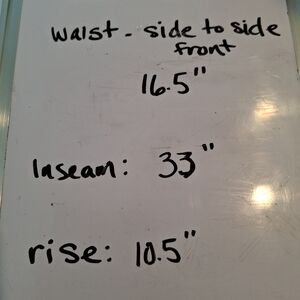 Waist - side to side
front
16.5"
Inseam: 33"
rise: 10.5"